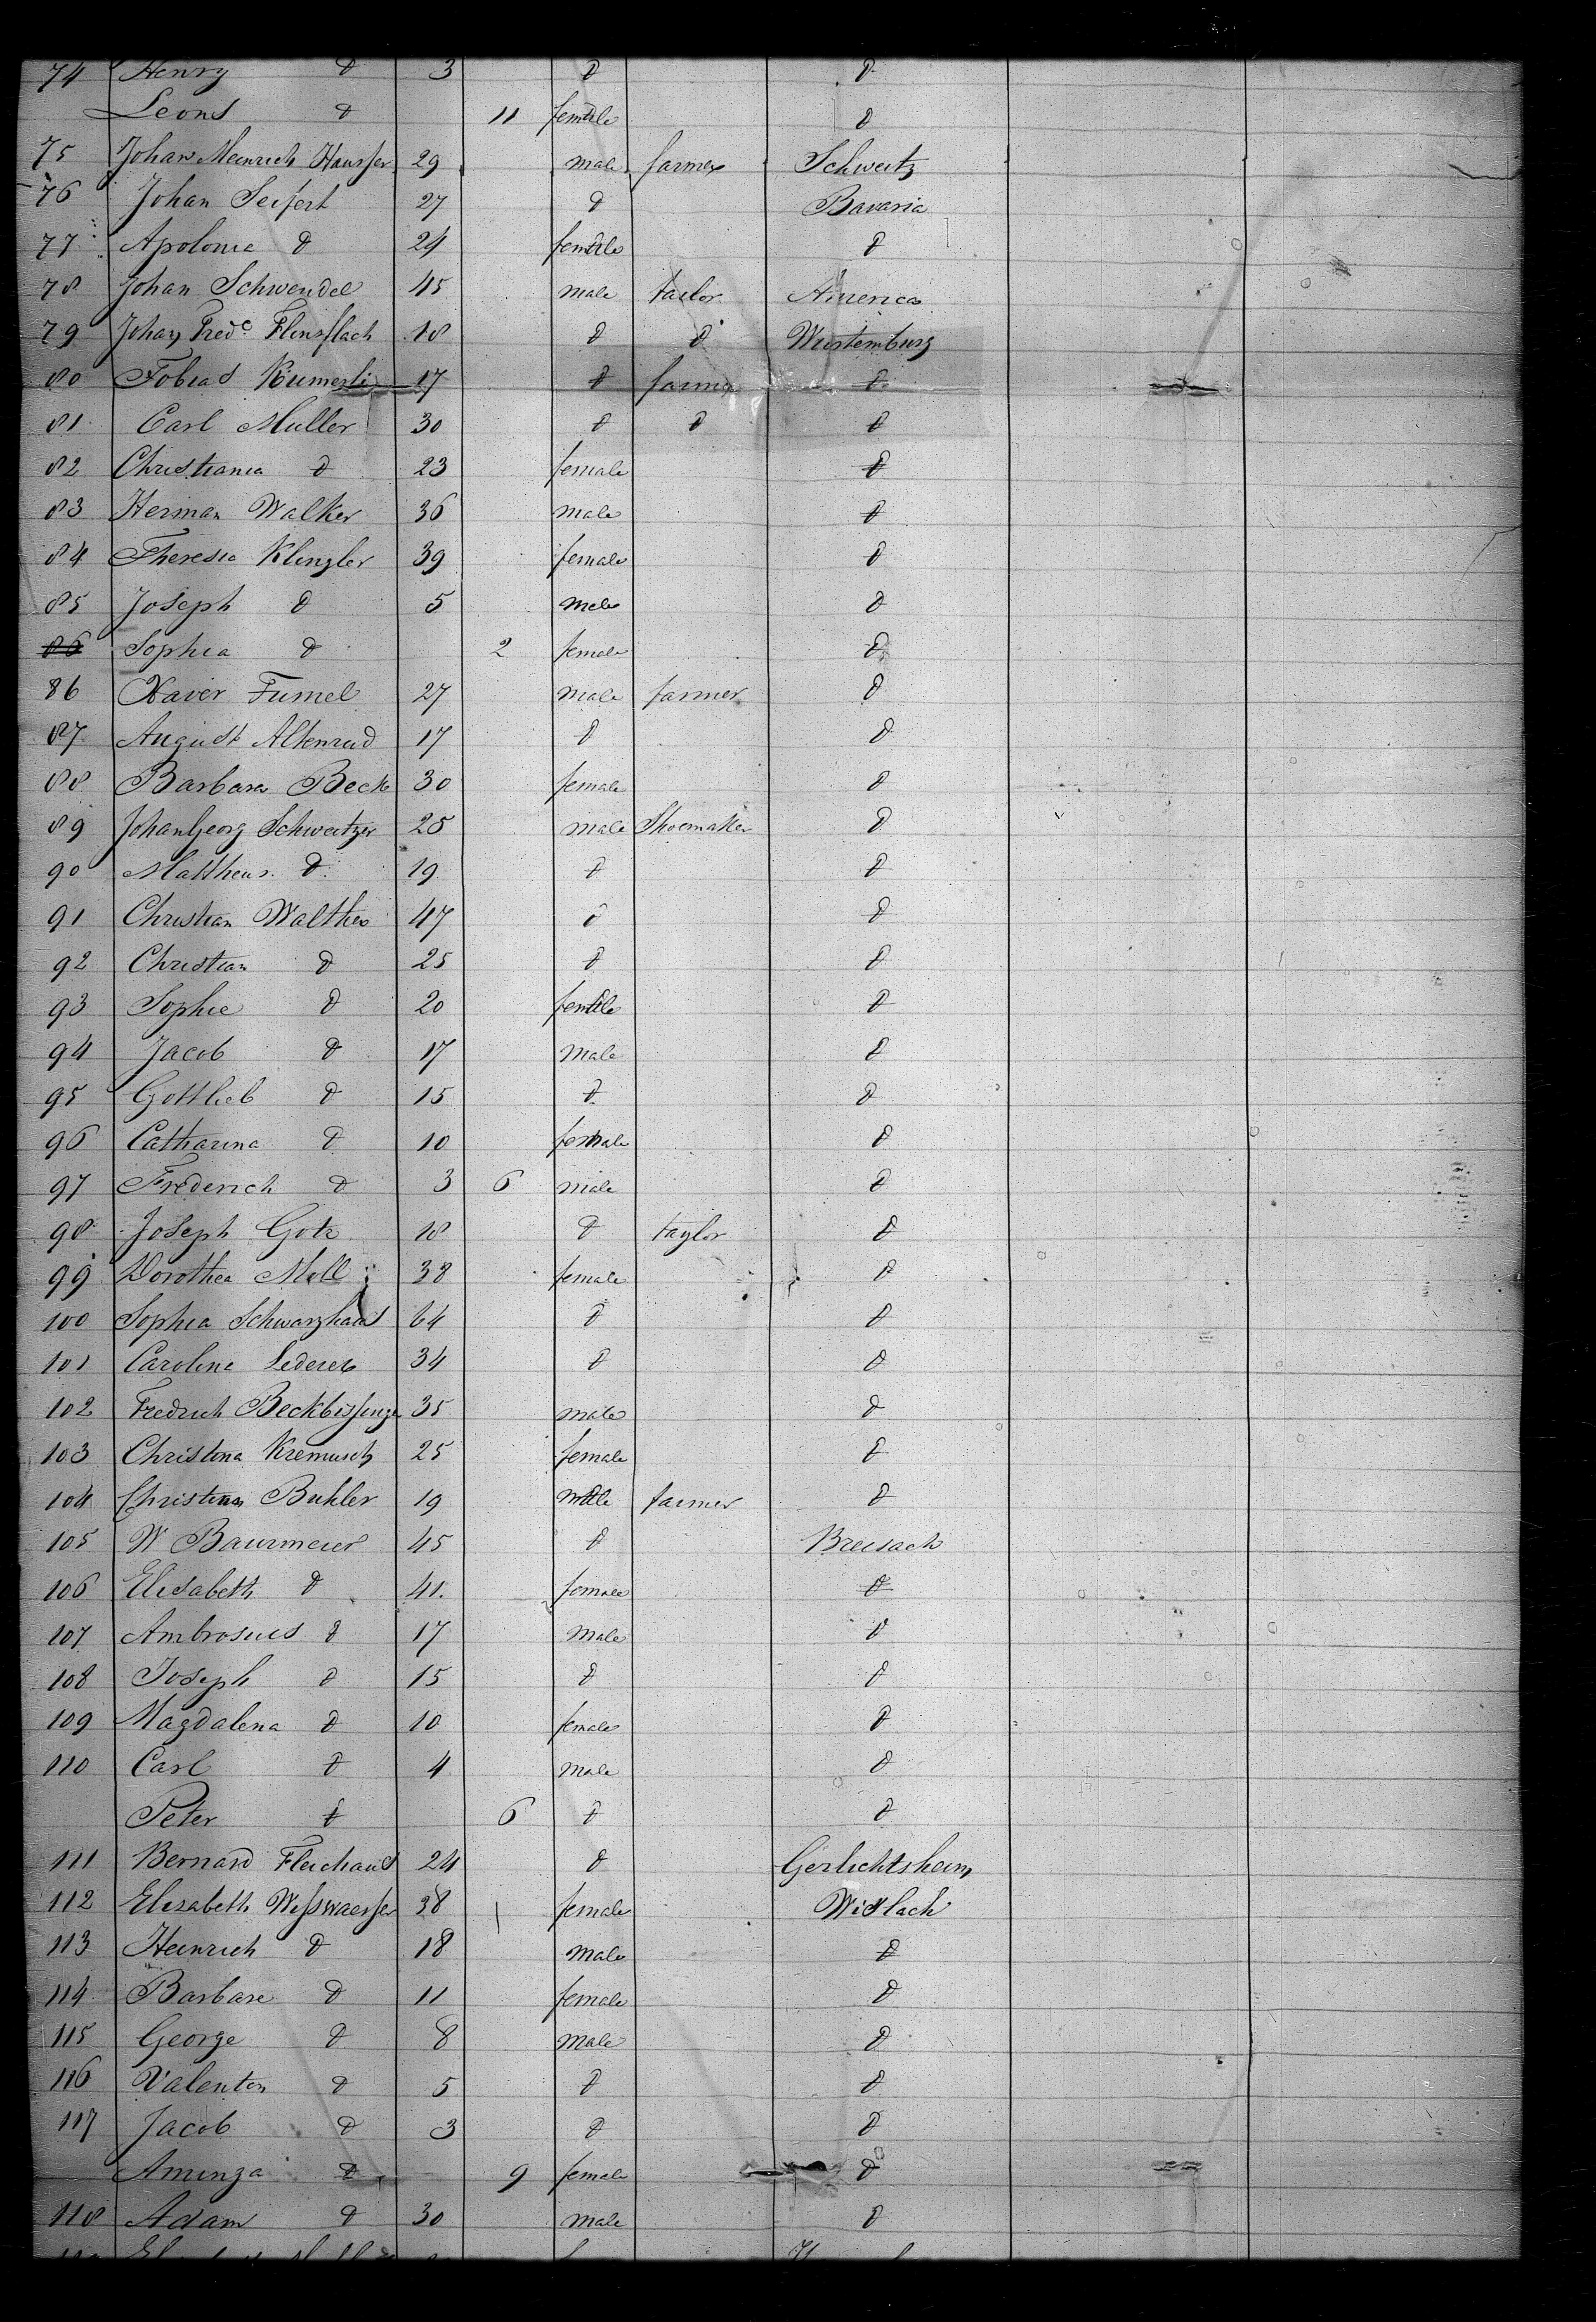 74 Henry d 3 d d
Leons d 11 female d
75 Johan Heinrich Hausser 29 male farmer Schweitz
76 Johan Seifert 27 d Bavaria
77 Apolonia d 24 female d
78 Johan Schwendel 45 male tailor America
79 Johan Fredc Flinsflach 18 d d Wurtemburg
80 Tobias Kumerli 17 d farmer d
81 Carl Muller 30 d d d
82 Christiania d 23 female d
83 Herman Walker 36 male d
84 Theresia Klingler 39 female d
85 Joseph d 5 male d
86 Sophia d 2 female d
86 Xaver Fumel 27 male farmer d
87 August Altenried 17 d d
88 Barbara Beck 30 female d
89 Johan Georg Schweitzer 25 male Shoemaker d
90 Mattheus d 19 d d
91 Christian Walther 47 d d
92 Christian d 25 d d
93 Sophie d 20 female d
94 Jacob d 17 male d
95 Gottlieb d 15 d d
96 Catharina d 10 female d
97 Frederich d 3 6 male d
98 Joseph Gotz 18 d taylor d
99 Dorothea Moll 38 female d
100 Sophia Schwarzhans 64 d d
101 Carolina Lederer 34 d d
102 Fredrich Beckbissinger 35 male d
103 Christina Kremusch 25 female d
104 Christian Buhler 19 male farmer d
105 W Baurmeier 45 d Breisach
106 Elisabeth d 41 female d
107 Ambrosius d 17 male d
108 Joseph d 15 d d
109 Magdalena d 10 female d
110 Carl d 4 male d
Peter d 6 d d
111 Bernard Fleichaus 24 d Gerlichtsheim
112 Elizabeth Wisswaesser 38 female Wislach
113 Heinrich d 18 male d
114 Barbara d 11 female d
115 George d 8 male d
116 Valentin d 5 d d
117 Jacob d 3 d d
Aminza d 9 female d
118 Adam d 30 male d